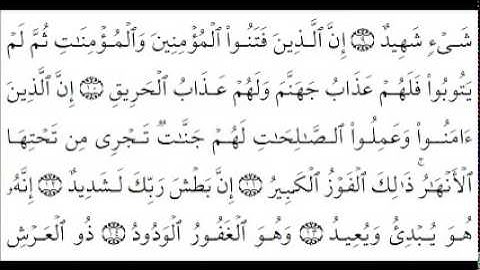 شَىْءٍ شَهِيدٌ ﴿٩﴾ إِنَّ ٱلَّذِينَ فَتَنُوا۟ ٱلْمُؤْمِنِينَ وَٱلْمُؤْمِنَـٰتِ ثُمَّ لَمْ
يَتُوبُوا۟ فَلَهُمْ عَذَابُ جَهَنَّمَ وَلَهُمْ عَذَابُ ٱلْحَرِيقِ ﴿١٠﴾ إِنَّ ٱلَّذِينَ
ءَامَنُوا۟ وَعَمِلُوا۟ ٱلصَّـٰلِحَـٰتِ لَهُمْ جَنَّـٰتٌ تَجْرِى مِن تَحْتِهَا
ٱلْأَنْهَـٰرُ ۚ ذَٰلِكَ ٱلْفَوْزُ ٱلْكَبِيرُ ﴿١١﴾ إِنَّ بَطْشَ رَبِّكَ لَشَدِيدٌ ﴿١٢﴾ إِنَّهُۥ
هُوَ يُبْدِئُ وَيُعِيدُ ﴿١٣﴾ وَهُوَ ٱلْغَفُورُ ٱلْوَدُودُ ﴿١٤﴾ ذُو ٱلْعَرْشِ